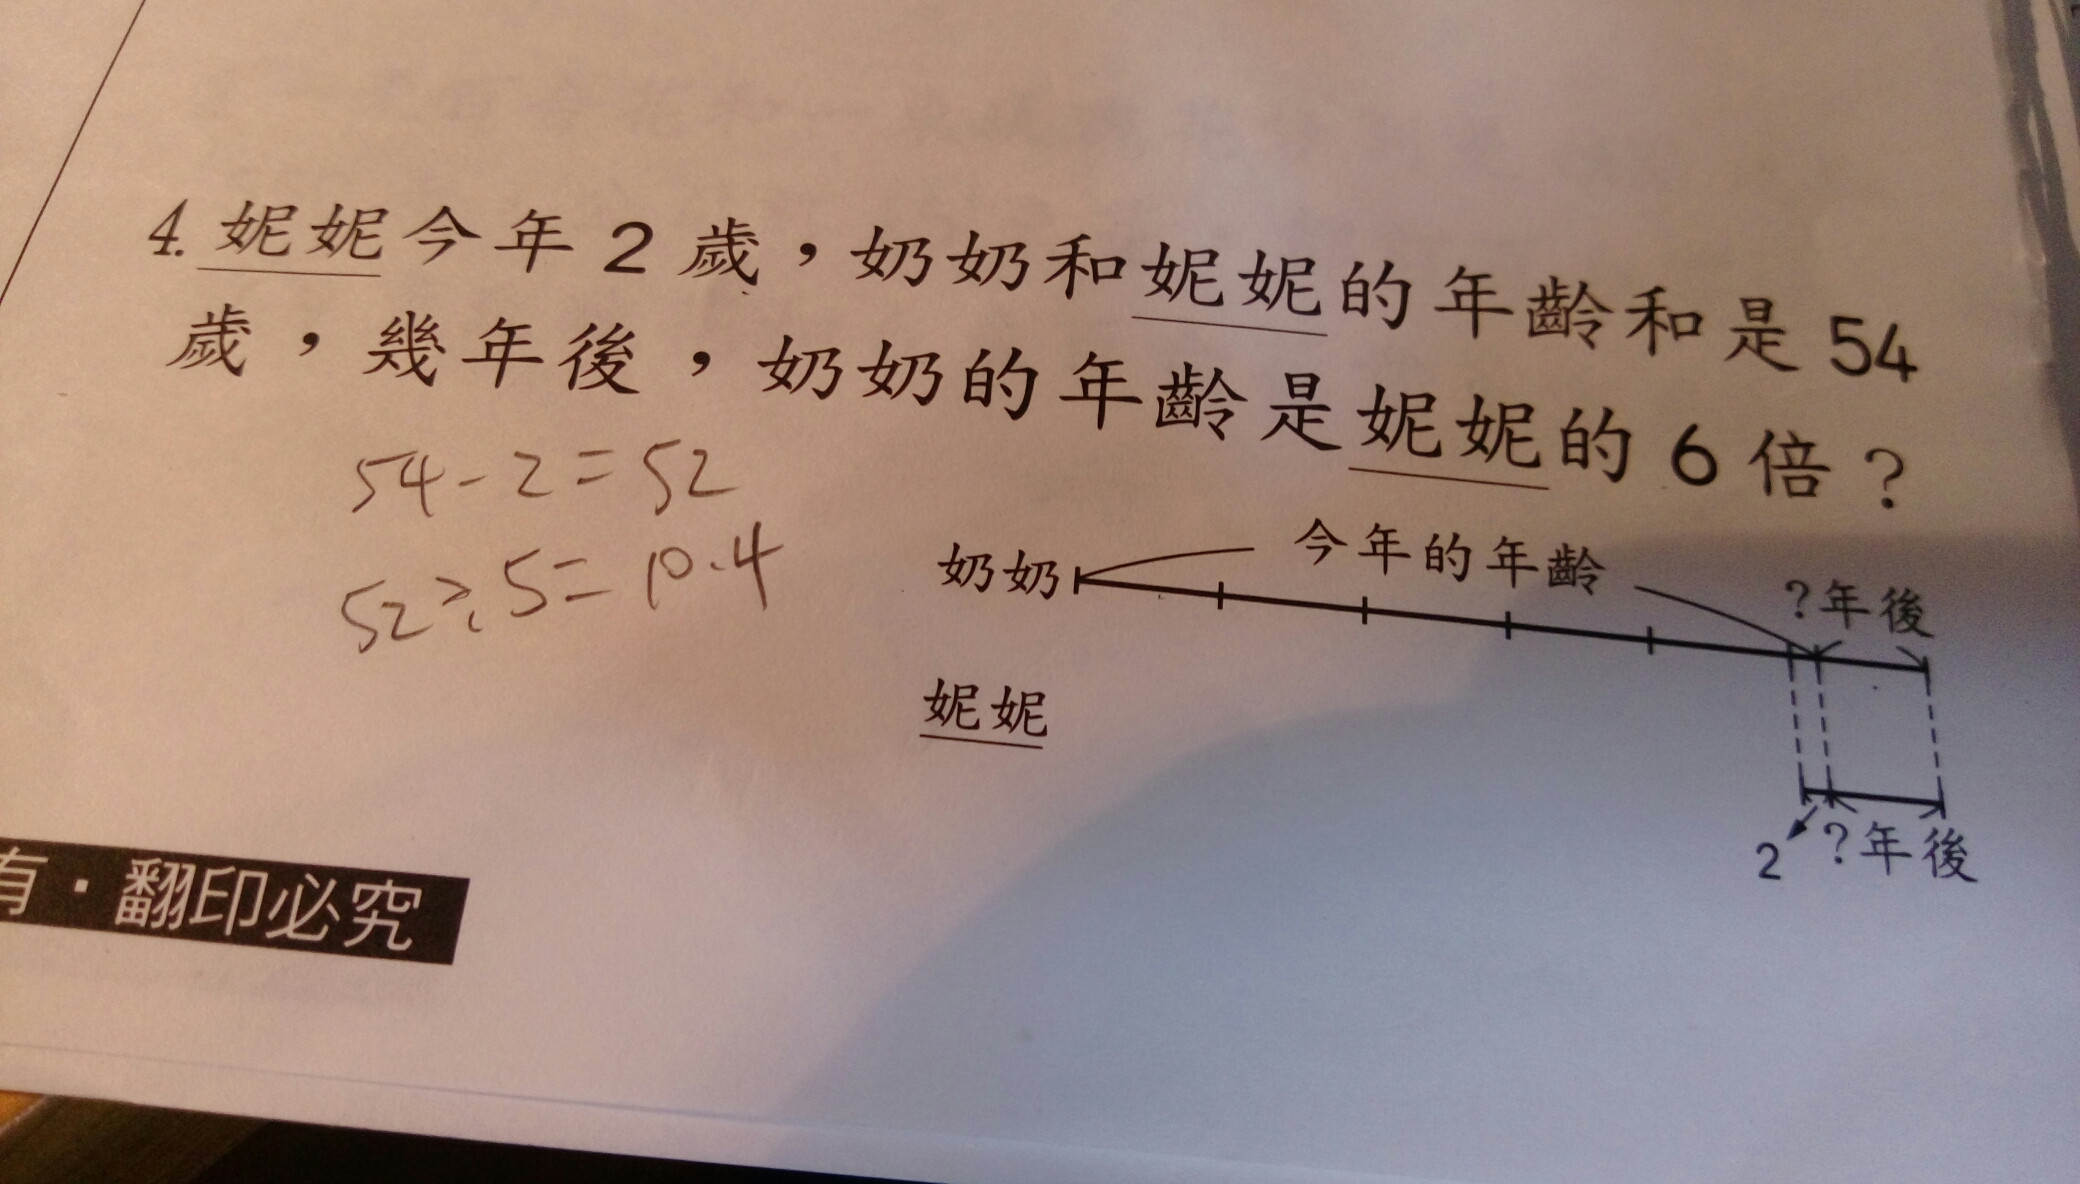 4. 妮妮今年2歲，奶奶和妮妮的年齡和是54
歲，幾年後，奶奶的年齡是妮妮的6倍？
54-2=52
52÷5=10.4
奶奶 今年的年齡 ?年後
妮妮
2 ?年後
有·翻印必究